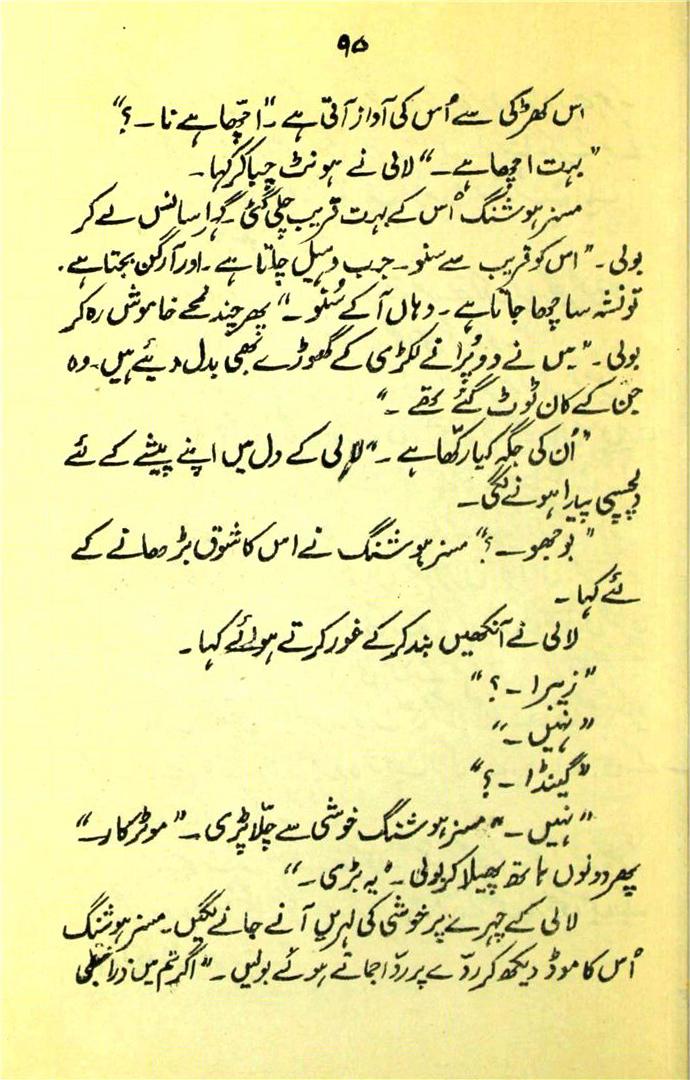 ۹۵
اس کھڑکی سے اُس کی آواز آتی ہے۔ "اچّھا ہے نا۔؟"
"بہت اچھا ہے۔" لالی نے ہونٹ چبا کر کہا۔
مسز ہوشنگ اُس کے بہت قریب چلی گئی۔ گہرا سانس لے کر
بولی۔ "اس کو قریب سے سنو۔ جب وہیل چلتا ہے۔ اور آرگن بجتا ہے۔
تو نشہ سا چھا جاتا ہے۔ وہاں آ کے سُنو۔" پھر چند لمحے خاموش رہ کر
بولی۔ "میں نے دو پُرانے لکڑی کے گھوڑے بھی بدل دیئے ہیں۔ وہ
جن کے کان ٹوٹ گئے تھے۔"
"اُن کی جگہ کیا رکھّا ہے۔" لالی کے دل میں اپنے پیشے کے لئے
دلچسپی پیدا ہونے لگی۔
"بوجھو۔؟" مسز ہوشنگ نے اس کا شوق بڑھانے کے
لئے کہا۔
لالی نے آنکھیں بند کر کے غور کرتے ہوئے کہا۔
"زیبرا۔؟"
"نہیں۔"
"گینڈا۔؟"
"نہیں۔" مسز ہوشنگ خوشی سے چلّا پڑی۔ "موٹر کار۔"
پھر دونوں ہاتھ پھیلا کر بولی۔ "یہ بڑی۔"
لالی کے چہرے پر خوشی کی لہریں آنے جانے لگیں۔ مسز ہوشنگ
اُس کا موڈ دیکھ کر ردّے پر ردّا جماتے ہوئے بولیں۔ "اگر تم میں ذرا